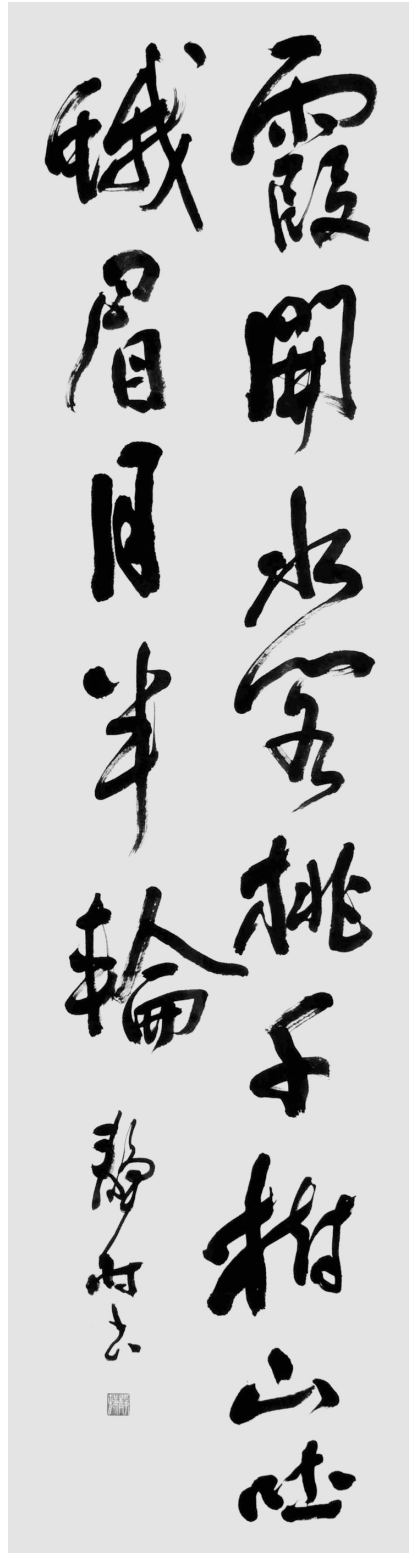 霞開水閣桃千樹山吐
蛾眉月半輪
靜書